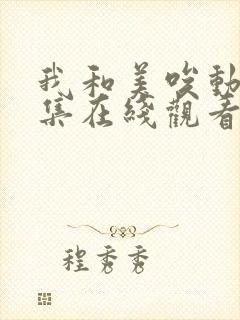 我和美咲動
集在綫觀看
程秀秀